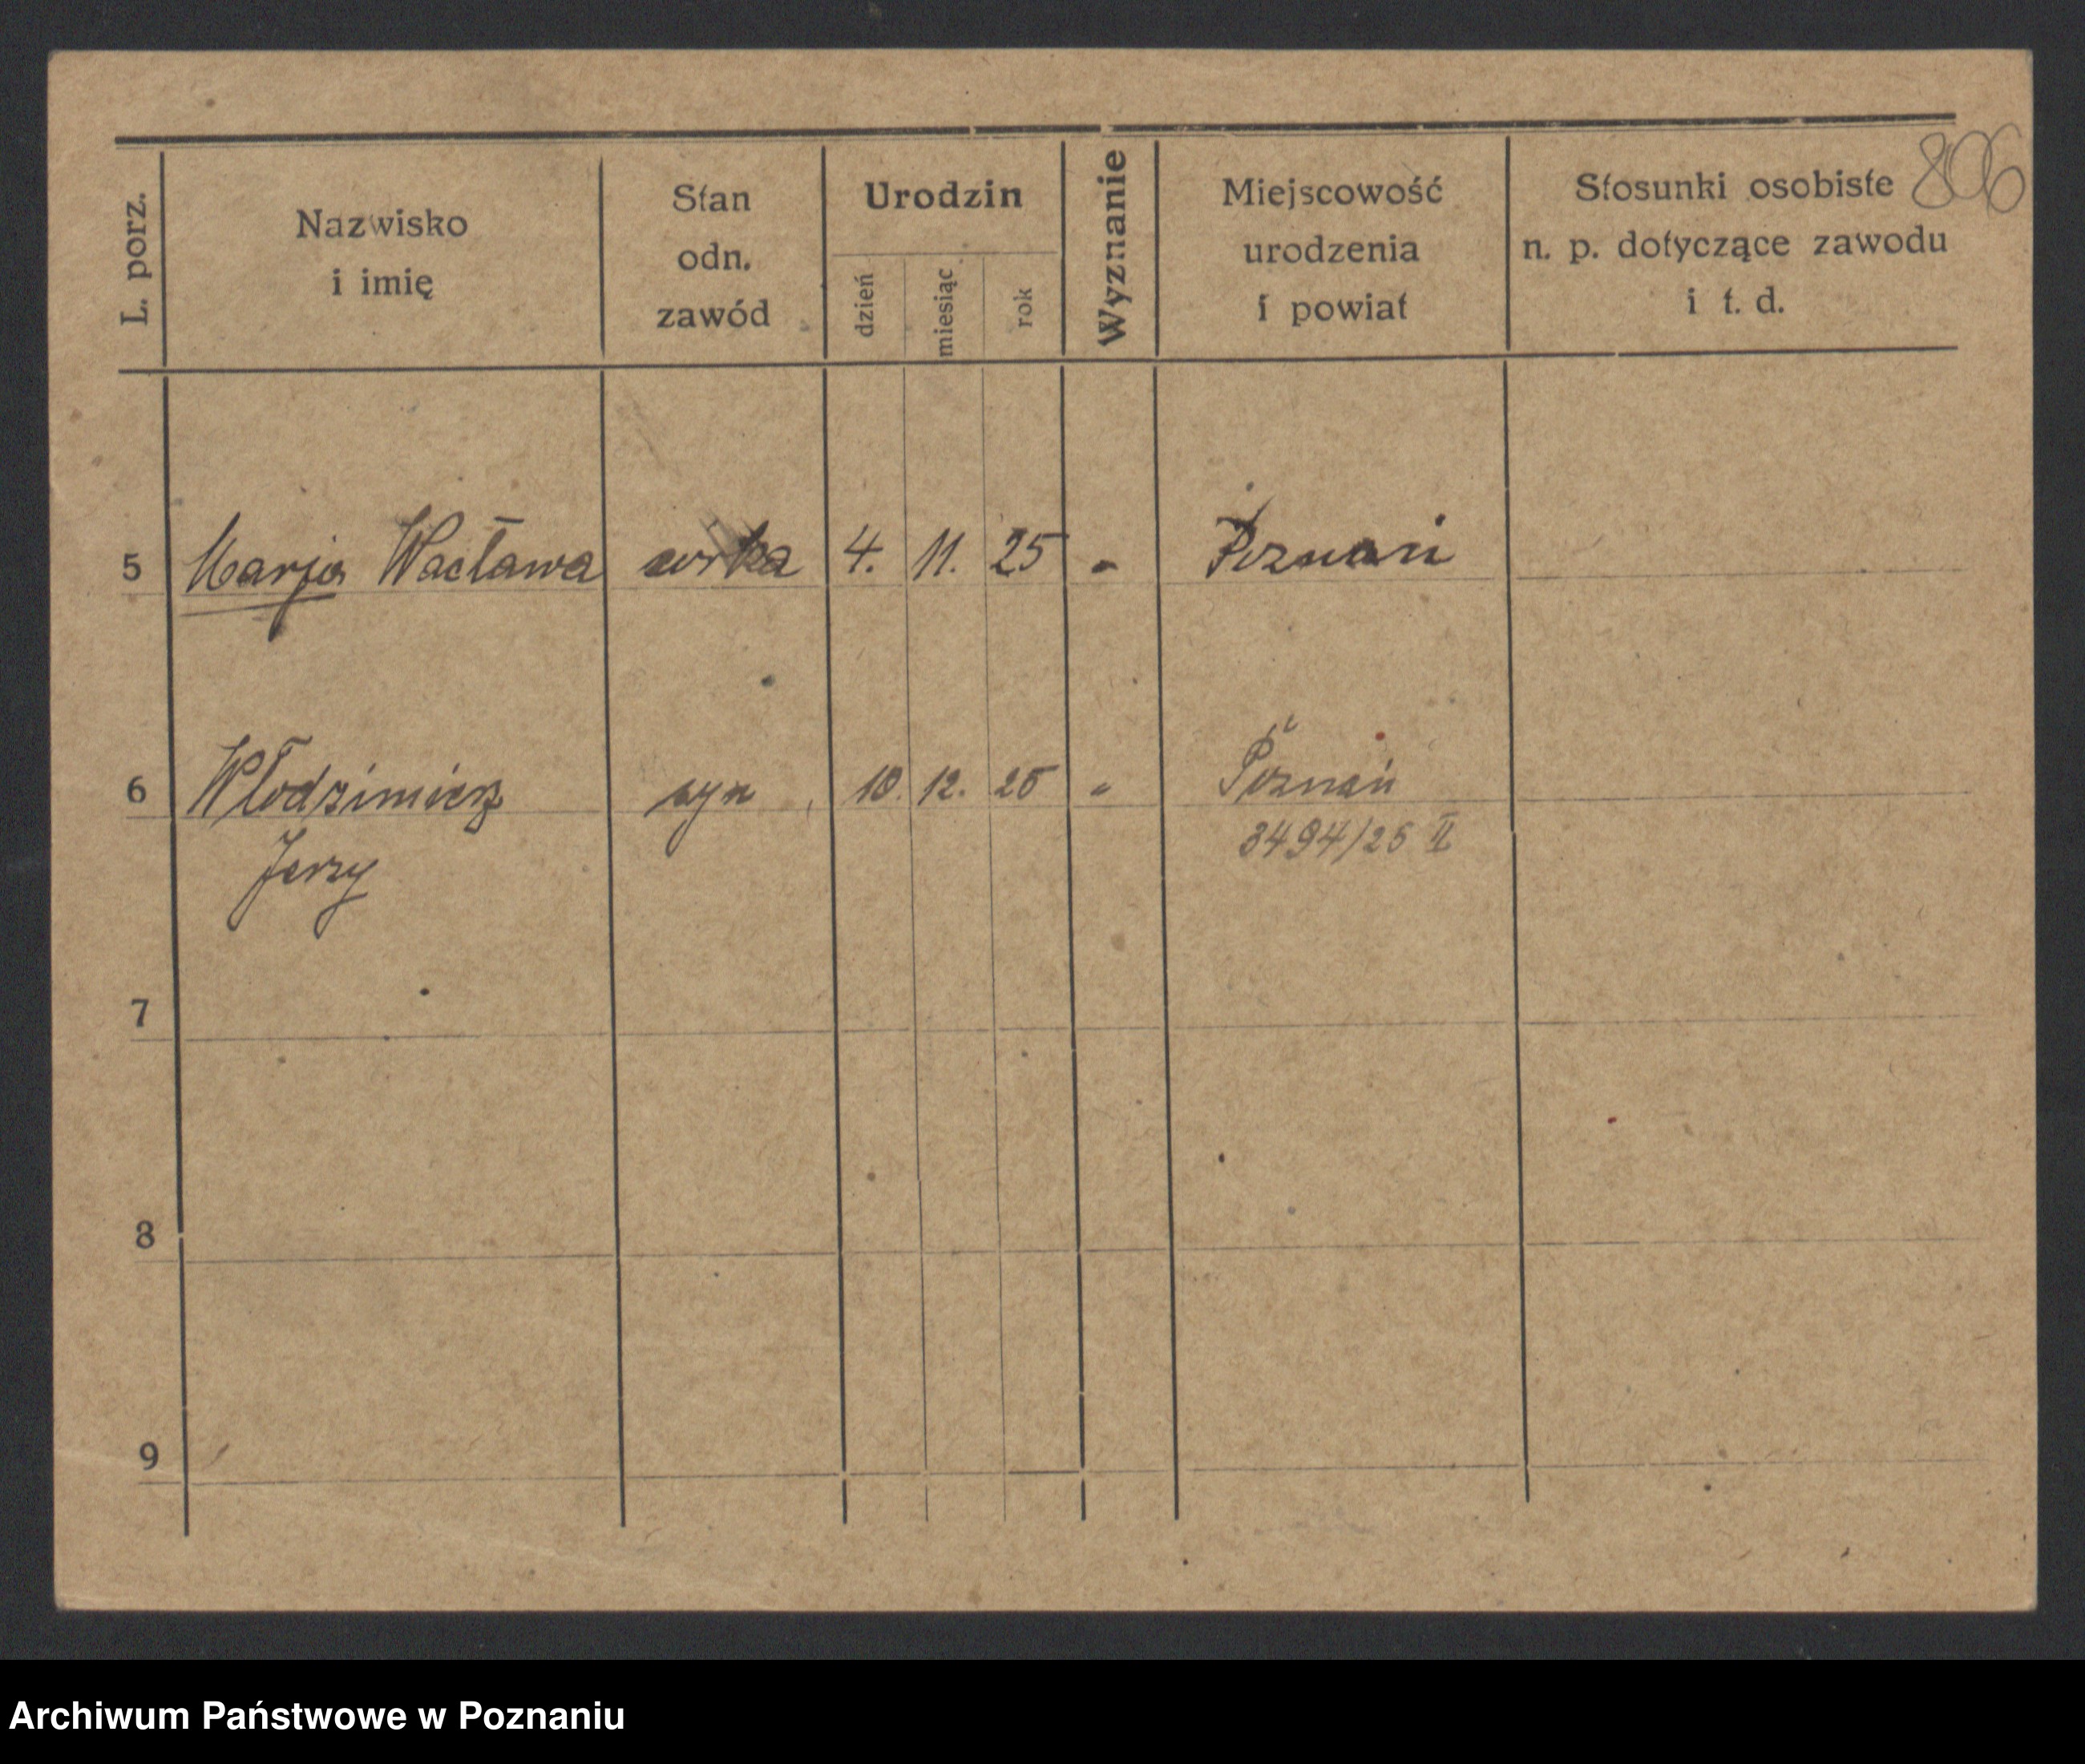 806
L. porz.
Nazwisko
i imię
Stan
odn.
zawód
Urodzin
dzień
miesiąc
rok
Wyznanie
Miejscowość
urodzenia
i powiat
Stosunki osobiste
n. p. dotyczące zawodu
i t. d.
5 Marja Wacława córka 4. 11. 25 " Poznań
6 Włodzimierz syn 10. 12. 25 " Poznań
Jerzy 3494/25 II
7
8
9
Archiwum Państwowe w Poznaniu